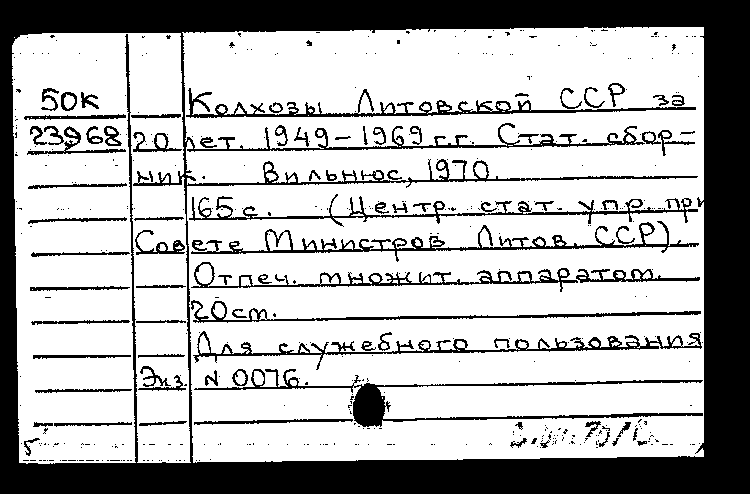 50К Колхозы Литовской ССР за
23968 20 лет. 1949-1969 г.г. Стат. сбор-
ник. Вильнюс, 1970.
165 с. (Центр. стат. упр. при
Совете Министров Литов. ССР).
Отпеч. множит. аппаратом.
20 см.
Для служебного пользования
Экз. N 0076.
5